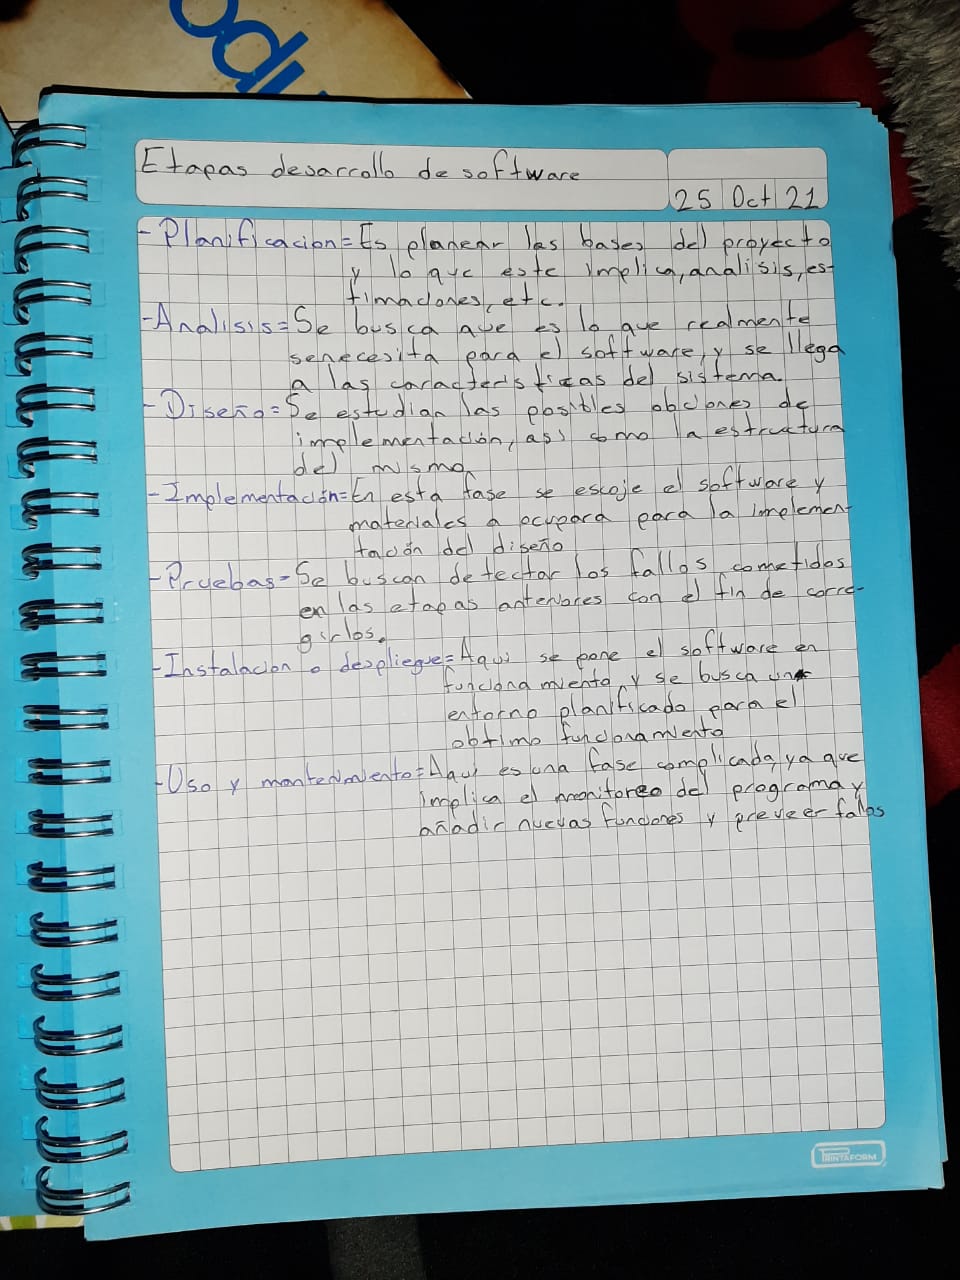 Etapas desarrollo de software
25 Oct 21
- Planificacion = Es planear las bases del proyecto
y lo que este implica, analisis, es-
timaciones, etc.
- Analisis = Se busca que es lo que realmente
senecesita para el software, y se llega
a las caracteristicas del sistema.
- Diseño = Se estudian las posibles obciones de
implementación, asi como la estructura
del mismo.
- Implementación = En esta fase se escoje el software y
materiales a ocupara para la implemen-
tación del diseño
- Pruebas - Se buscan detectar los fallos cometidos
en las etapas anteriores con el fin de corre-
girlos.
- Instalacion o despliegue = Aqui se pone el software en
funcionamiento y se busca un
entorno planificado para el
obtimo funcionamiento
- Uso y mantenimiento = Aqui es una fase complicada, ya que
implica el monitoreo del programa y
añadir nuevas funciones y preveer fallos
PRINTAFORM